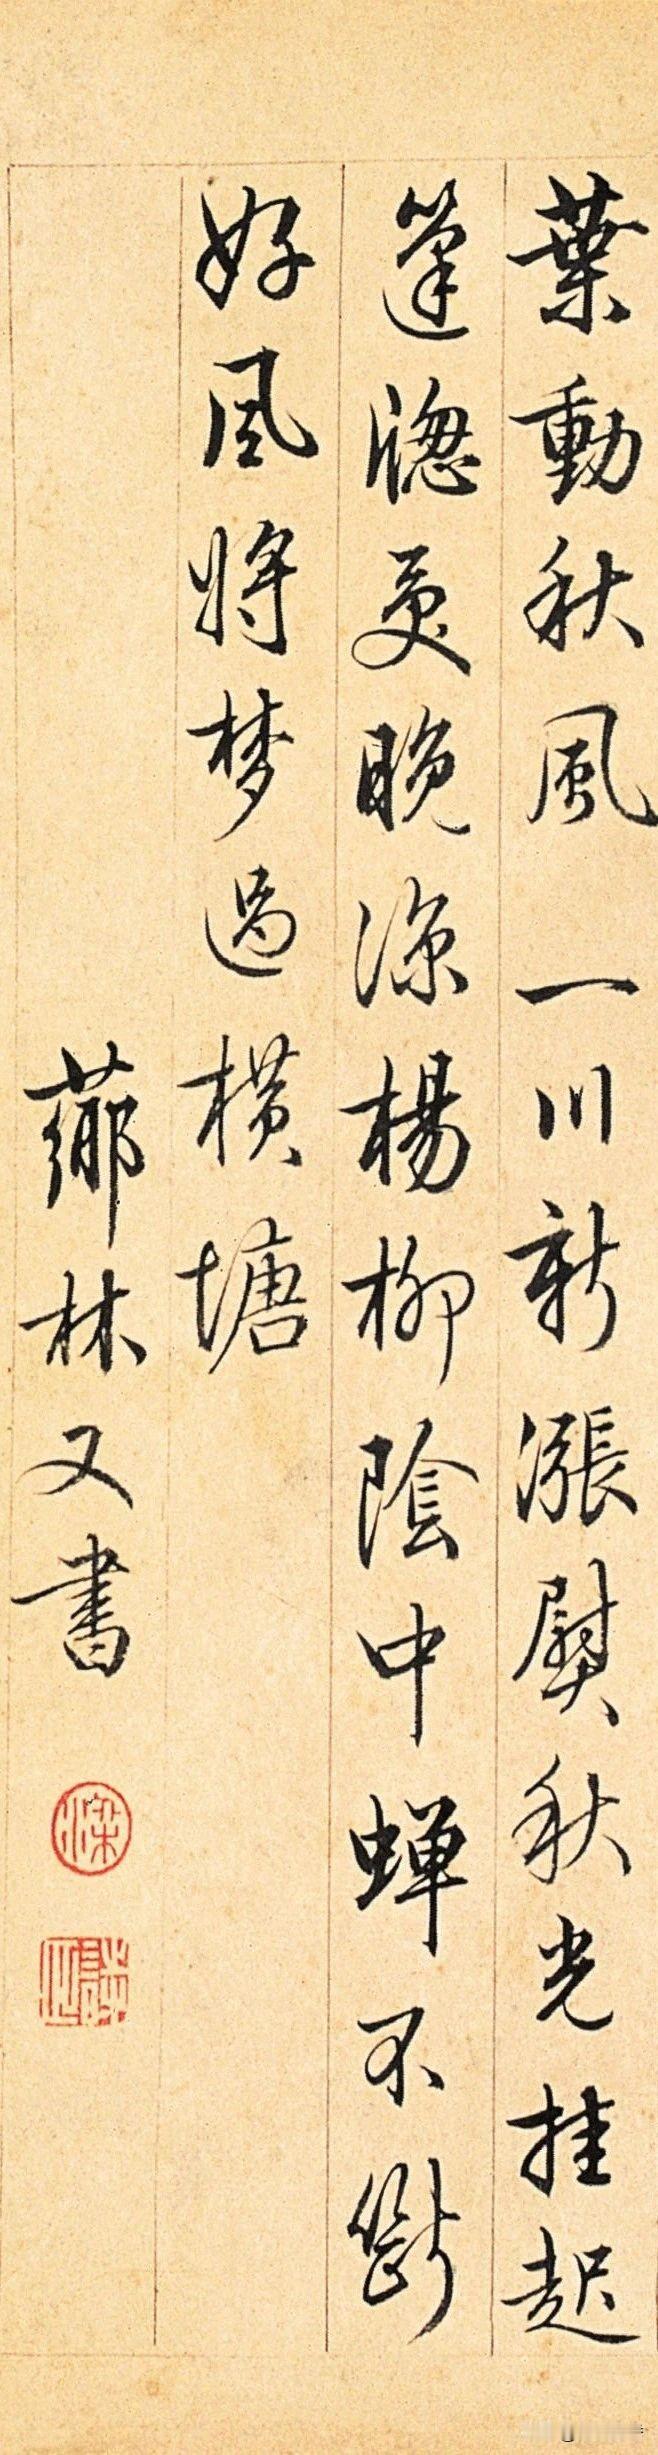 葉動秋風 一川新漲熨秋光挂起
篷窓受晚涼楊柳陰中蟬不斷
好風將夢過橫塘
薌林又書
梁